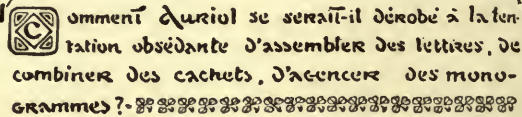 Comment Auriol se serait-il dérobé à la ten-
tation obsédante d'assembler des lettres, de
combiner des cachets, d'agencer des mono-
grammes ?-